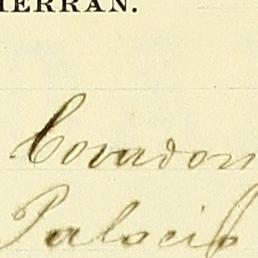 HERRAN.
Covadon
Palacio